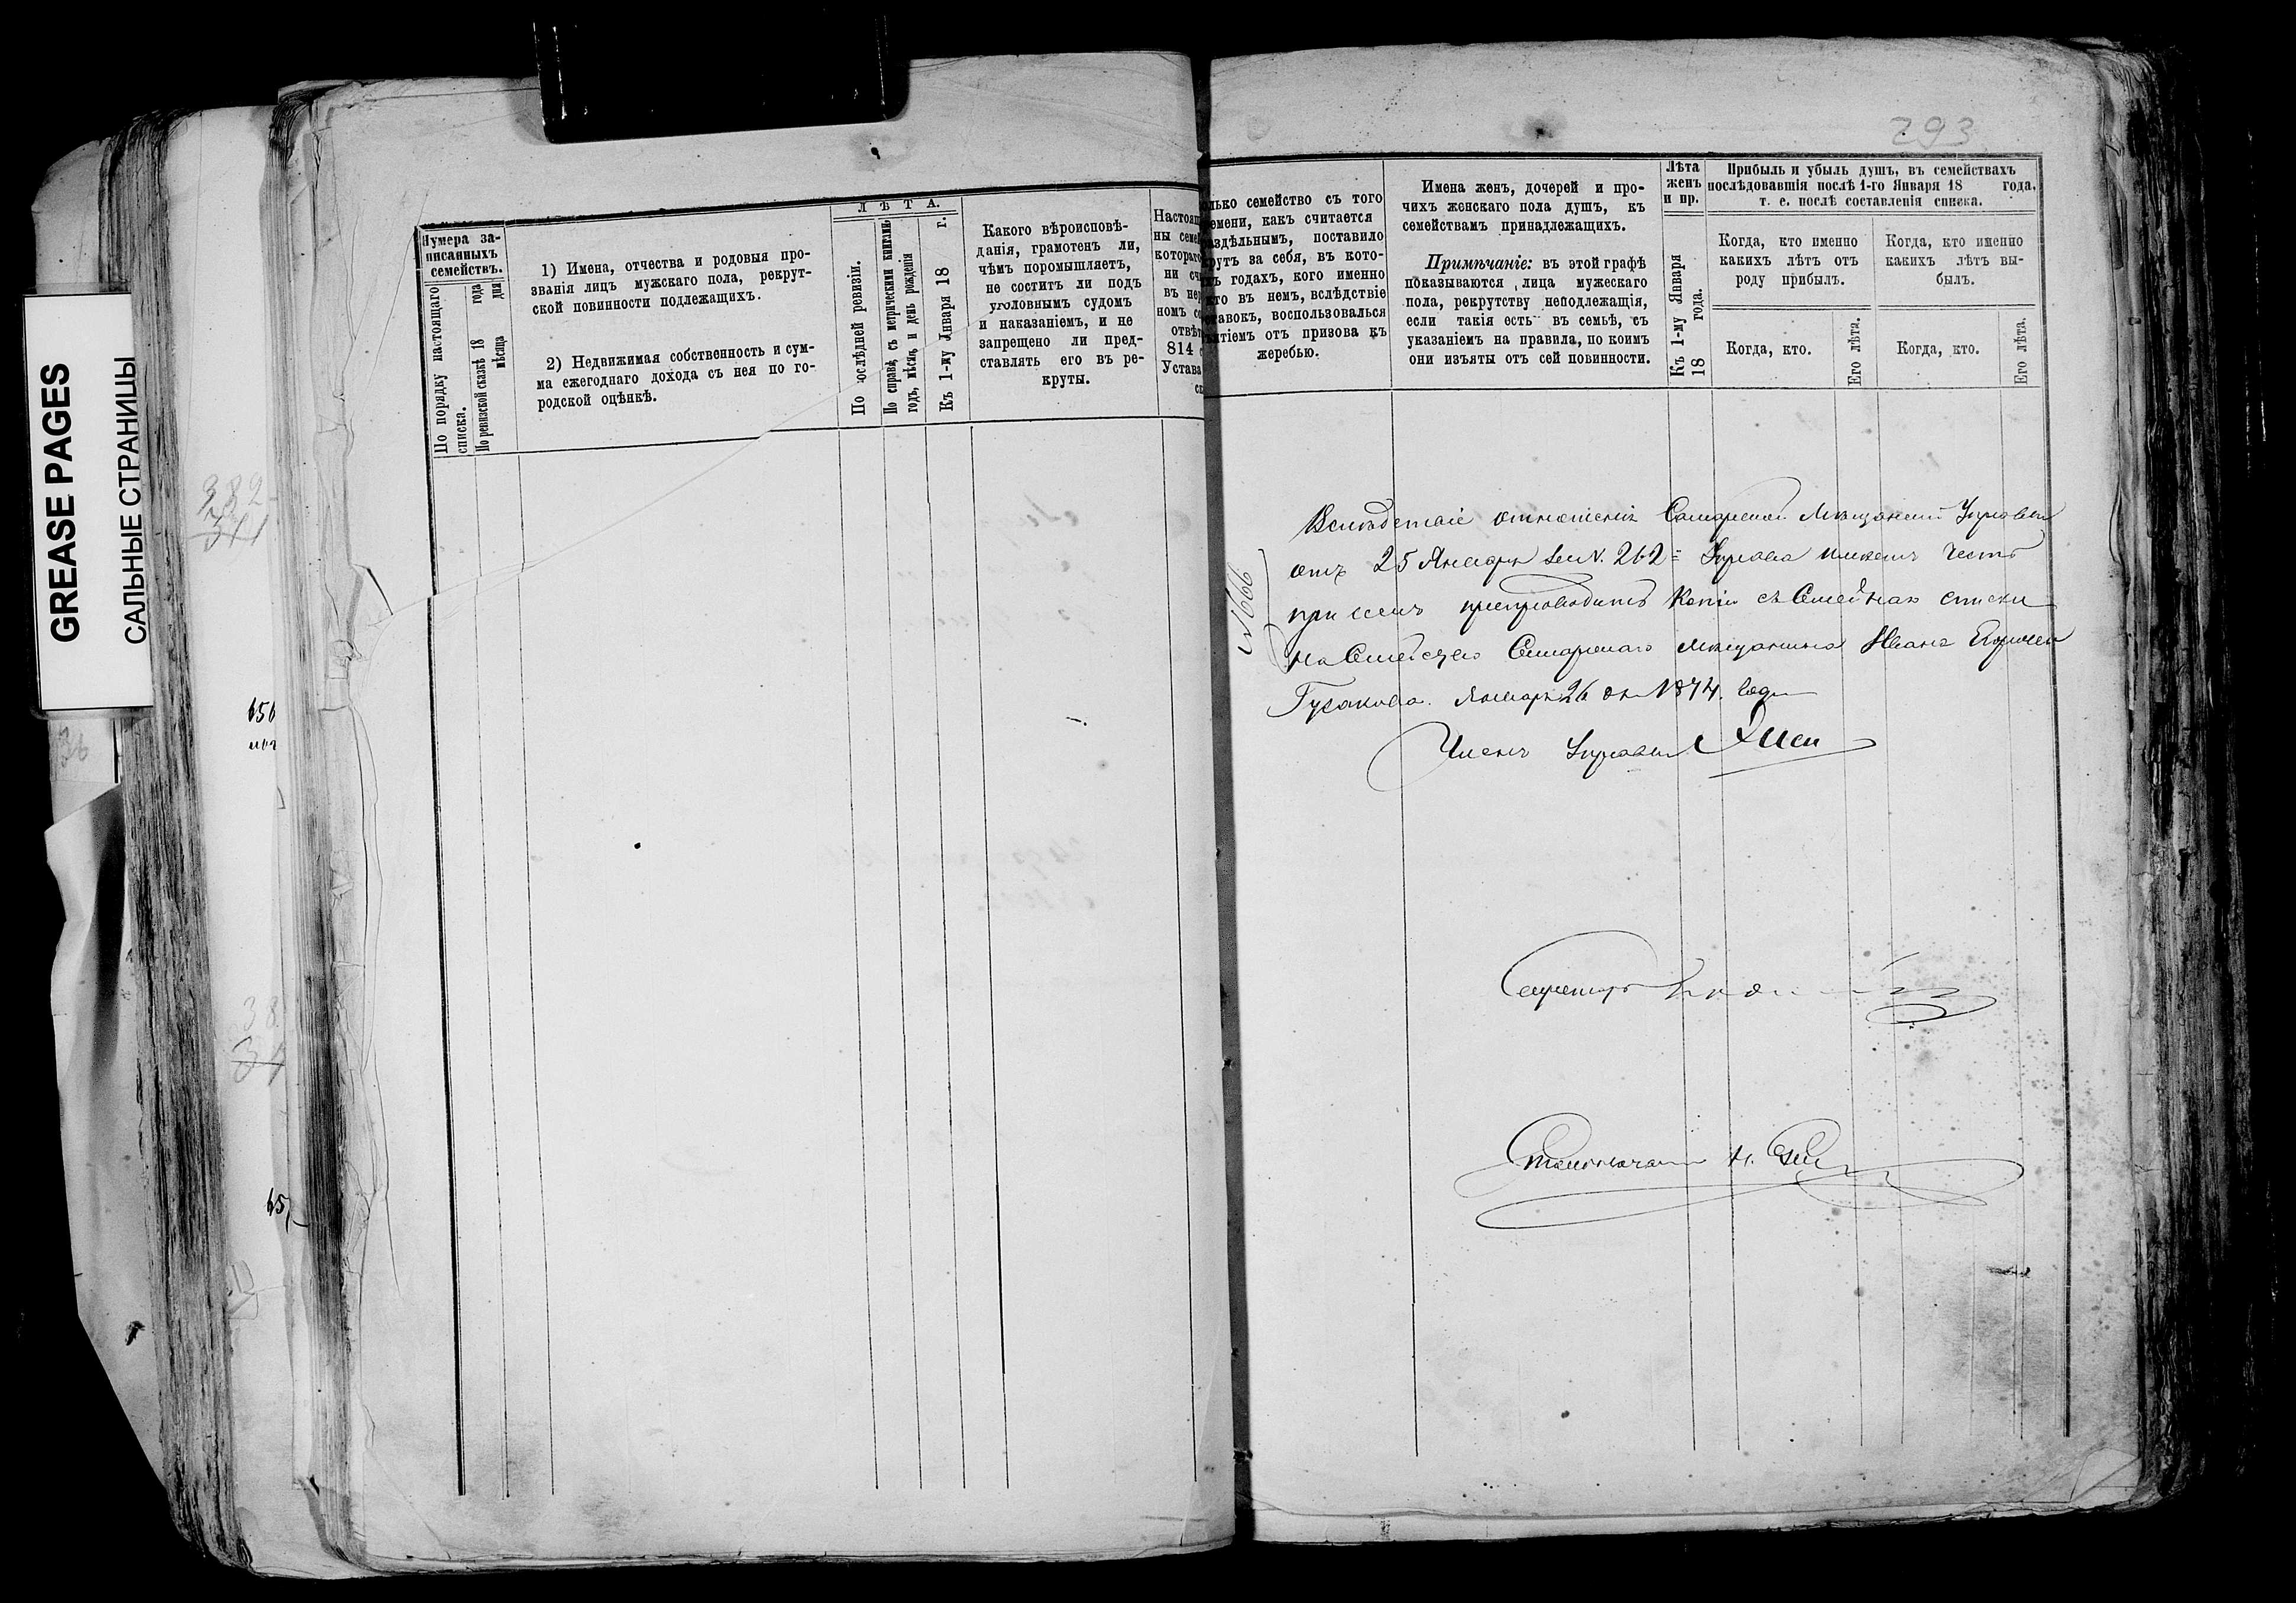 GREASE PAGES
САЛЬНЫЕ СТРАНИЦЫ
382
341
656
38
34
65
Нумера за-
писанныхъ
семействъ.
По порядку настоящаго
списка.
По ревизской сказкѣ 18 года
мѣсяца дня
1) Имена, отчества и родовыя про-
званія лицъ мужскаго пола, рекрут-
ской повинности подлежащихъ.
2) Недвижимая собственность и сум-
ма ежегоднаго дохода съ нея по го-
родской оцѣнкѣ.
ЛѢТА.
По послѣдней ревизіи.
По справкѣ съ метрическими книгами
годъ, мѣсяцъ и день рожденія
Къ 1-му Января 18 г.
Какого вѣроисповѣ-
данія, грамотенъ ли,
чѣмъ поромышляетъ,
не соститъ ли подъ
уголовнымъ судомъ
и наказаніемъ, и не
запрещено ли пред-
ставлять его въ ре-
круты.
Настоящ
ны семей
котораго
ни сч
въ не
номъ со
отвѣт
814 с
Устава
293
олько семейство съ того
емени, какъ считается
аздѣльнымъ, поставило
крутъ за себя, въ кото-
хъ годахъ, кого именно
кто въ немъ, вслѣдствіе
тавокъ, воспользовался
ъятіемъ отъ призова къ
жеребью.
Имена женъ, дочерей и про-
чихъ женскаго пола душъ, къ
семействамъ принадлежащихъ.
Примѣчаніе: въ этой графѣ
показываются лица мужескаго
пола, рекрутству неподлежащія,
если такія есть въ семьѣ, съ
указаніемъ на правила, по коимъ
они изъяты отъ сей повинности.
Лѣта
женъ
и пр.
Къ 1-му Января
18 года.
Прибыль и убыль душъ, въ семействахъ
послѣдовавшія послѣ 1-го Января 18 года,
т. е. послѣ составленія списка.
Когда, кто именно
какихъ лѣтъ отъ
роду прибылъ.
Когда, кто.
Его лѣта.
Когда, кто именно
какихъ лѣтъ вы-
былъ.
Когда, кто.
Его лѣта.
N 666
Вслѣдствіе отношенія Самарской Мѣщанской Управы
отъ 25 Января за N. 262= Управа имѣетъ честь
при семъ препроводить Копію съ Семейнаго списка
на Семейство Самарскаго мѣщанина Ивана
Гусакова. Января 26 дня 1874 года
Членъ Управы
Секретарь
Столоначальн Н.